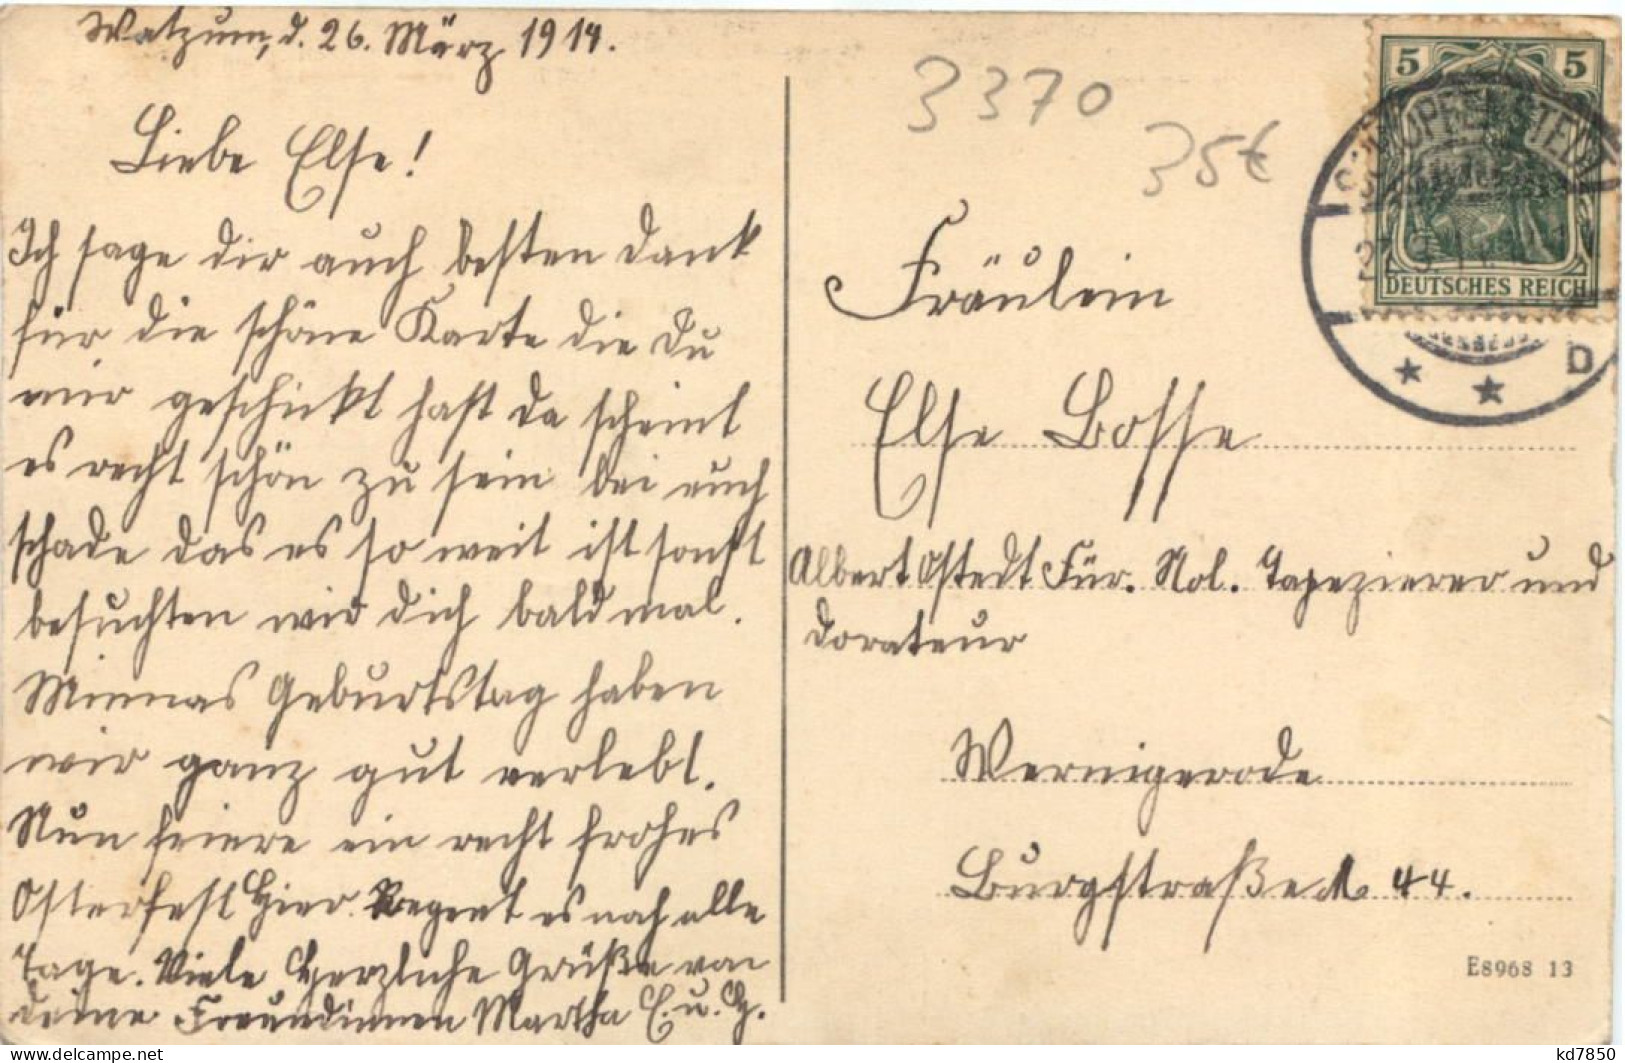 Watzum, d. 26. März 1914.
Liebe Else!
Ich sage dir auch besten Dank
für die schöne Karte die Du
mir geschickt hast da scheint
es recht schön zu sein bei euch
schade das es so weit ist sonst
besuchten wir dich bald mal.
Minnas Geburtstag haben
wir ganz gut verlebt.
Nun feiere ein recht frohes
Osterfest Hier Regent es noch alle
Tage. Viele Herzliche Grüße von
deine Freundinnen Martha E. u. H.
3370
35€
5 5
DEUTSCHES REICH
D
Fräulein
Else Bosse
Albert Ostedt Für. Nol. Tapezierer und
Dorateur
Wernigerode
Burgstraße № 44.
E8968 13
kd7850